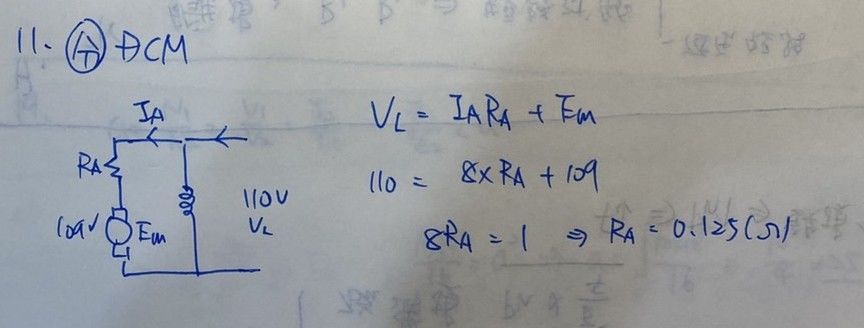 11. 分 DCM
IA
RA
109V Em
110V
VL
VL = IARA + Em
110 = 8×RA + 109
8RA = 1 ⇒ RA = 0.125(Ω)